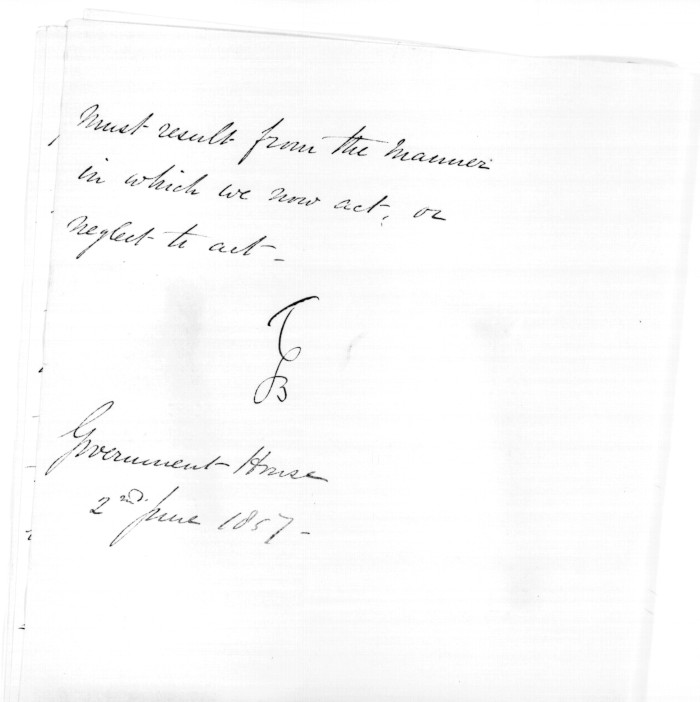 must result from the manner
in which we now act, or
neglect to act -
Government House
2nd June 1857 -